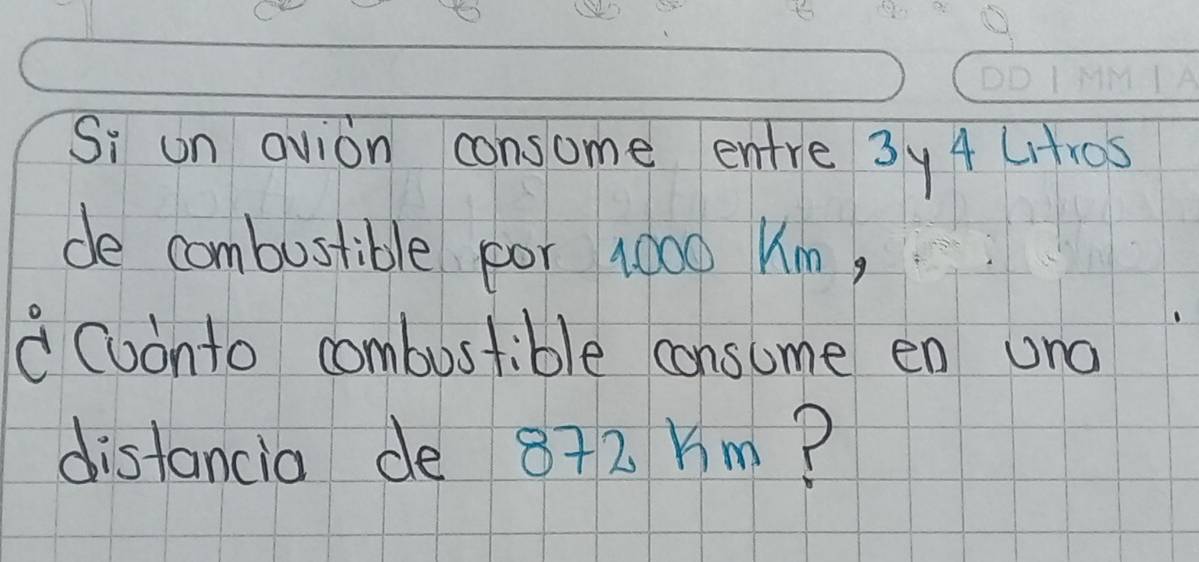 DD | MM | A
Si un avión consume entre 3 y 4 Litros
de combustible por 1.000 Km,
¿Cuánto combustible consume en una
distancia de 872 Km?